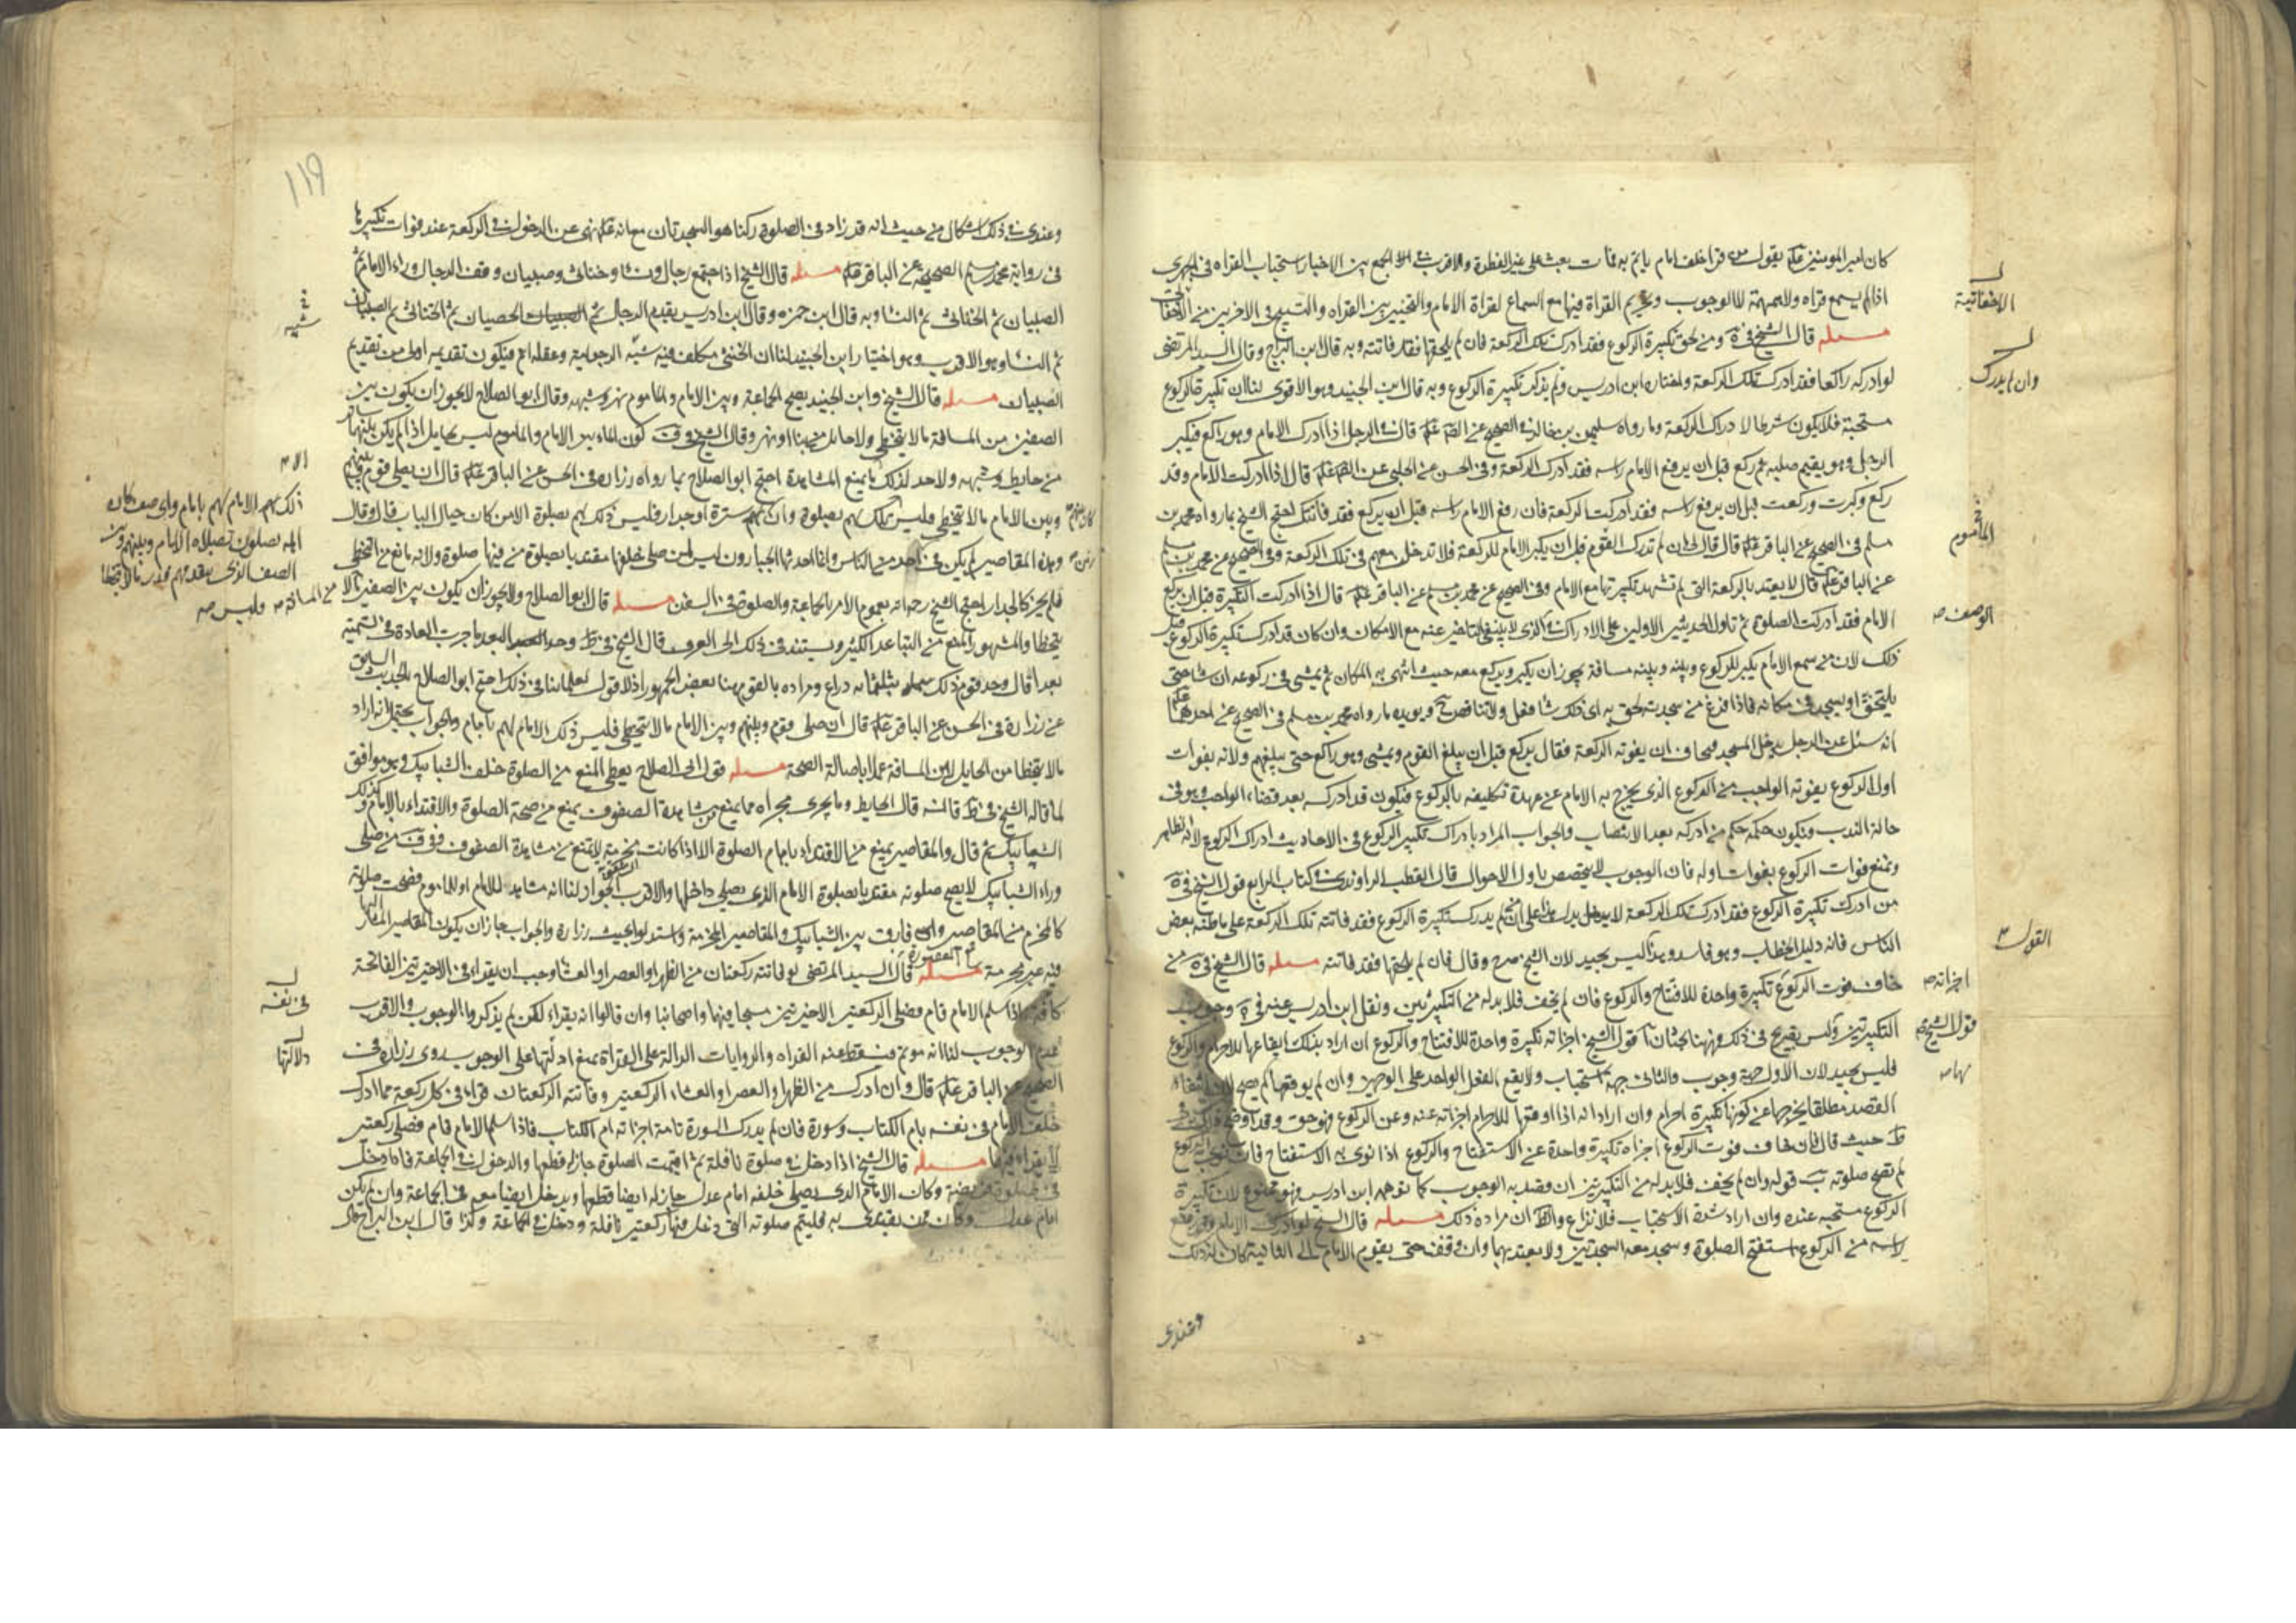 كان امير المومنين عليه السلام يقول من قرا خلف امام ياتم به فمات بعث على غير الفطرة والاقرب في الجمع بين الاخبار استحباب القراه في الجهري
اذا لم يسمع قراه ولا همهمة لا الوجوب وتحريم القراة فيها مع السماع لقراة الامام والتخيير بين القراه والتسبيح في الاخرتين من
مسله قال الشيخ في ية ومن لحق تكبيرة الركوع فقد ادرك تلك الركعة فان لم يلحقها فقد فاتته وبه قال ابن البراج وقال السيد المرتضى
لو ادركه راكعا فقد ادرك تلك الركعة واختاره ابن ادريس ولم يذكر تكبيرة الركوع وبه قال ابن الجنيد وهو الاقوى لنا ان تكبيرة الركوع
مستحبة فلا يكون شرطا لا دراك الركعة وما رواه سليمن بن خالد في الصحيح عن الصادق عليه السلام قال في الرجل اذا ادرك الامام وهو راكع فيكبر
الرجل وهو يقيم صلبه ثم ركع قبل ان يرفع الامام راسه فقد ادرك الركعة وفي الحسن عن الحلبي عن الصادق عليه السلام قال اذا ادركت الامام وقد
ركع وكبرت وركعت قبل ان يرفع راسه فقد ادركت الركعة فان رفع الامام راسه قبل ان يركع فقد فاتتك احتج الشيخ بما رواه محمد بن
مسلم في الصحيح عن الباقر عليه السلام قال قال لي ان لم تدرك القوم قبل ان يكبر الامام للركعة فلا تدخل معهم في تلك الركعة وفي الصحيح عن محمد بن مسلم
عن الباقر عليه السلام قال لا يعتد بالركعة التي لم تشهد تكبيرتها مع الامام وفي الصحيح عن محمد بن مسلم عن الباقر عليه السلام قال اذا ادركت التكبيرة قبل ان يركع
الامام فقد ادركت الصلوة ثم تاول الحديثين الاولين على الادراك الذي لا ينبغي التاخير عنه مع الامكان وان كان قد ادرك تكبيرة الركوع قبل
ذلك لان من سمع الامام يكبر للركوع وبينه وبينه مسافة يجوز ان يكبر ويركع معه حيث انتهى به المكان ثم يمشي في ركوعه ان شا حتى
يلتحق او يسجد في مكانه فاذا فرغ من سجدته لحق به اي ذلك شا فعل ولا تناقض ح ويويده ما رواه محمد بن مسلم في الصحيح عن احدهما عليهما
انه سئل عن الرجل يدخل المسجد فيخاف ان يفوته الركعة فقال يركع قبل ان يبلغ القوم ويمشي وهو راكع حتى يبلغهم ولانه بفوات
اول الركوع يفوته الواجب من الركوع الذي يخرج به الامام عن عهدة تكليفه بالركوع فيكون قد ادركه بعد قضاء الواجب وهو في
حالة الندب ويكون حكمه حكم من ادركه بعد الانتصاب والجواب المراد بادراك تكبير الركوع في الاحاديث ادراك الركوع
ونمنع فوات الركوع بفوات اوله فان الوجوب لا يختص باول الاحوال قال القطب الراوندي في كتاب الرابع قول الشيخ في ية
من ادرك تكبيرة الركوع فقد ادرك تلك الركعة لا يدل على ان من لم يدرك تكبيرة الركوع فقد فاتته تلك الركعة على ما ظنه بعض
الناس فانه دليل الخطاب وهو فاسد وهذا ليس بجيد لان الشيخ صرح وقال فان لم يلحقها فقد فاتته مسله قال الشيخ في ية من
خاف فوت الركوع تكبيرة واحدة للافتتاح والركوع فان لم يخف فلا بد له من التكبيرتين ونقل ابن ادريس عنه في ية وجوب
التكبيرتين وليس بصريح في ذلك وههنا بحثان آ قول الشيخ اجزاته تكبيرة واحدة للافتتاح والركوع ان اراد بذلك ايقاعها للاحرام والركوع
فليس بجيد لان الاول جهة وجوب والثاني جهة استحباب ولا يقع الفعل الواحد على الوجهين وان لم يوقعها لم يصح
القصد مطلقا يخرجها عن كونها تكبيرة احرام وان اراد انه اذا اوقعها للاحرام اجزاته عنه وعن الركوع فهو حق وقد اوضح ذلك في
ط حيث قال فان خاف فوت الركوع اجزاه تكبيرة واحدة عن الاستفتاح والركوع اذا نوى به الاستفتاح فان نوى به الركوع
لم تصح صلوته ب قوله وان لم يخف فلا بد له من التكبيرتين ان قصد به الوجوب كما توهمه ابن ادريس فهو ممنوع لان تكبيرة
الركوع مستحبه عنده وان اراد شدة الاستحباب فلا نزاع والظ ان مراده ذلك مسله قال الشيخ لو ادرك الامام وقد رفع
راسه من الركوع استفتح الصلوة وسجد معه السجدتين ولا يعتد بهما وان وقف حتى يقوم الامام الى الثانية كان له ذلك
وعندي
الاخفاتية
وان لم يدرك
الماموم
الوصف صه
القول
اجزاته صه
قول الشيخ
119
وعندي في ذلك اشكال من حيث انه قد زاد في الصلوة ركنا هو السجدتان مع انه عليه السلام نهى عن الدخول في الركعة عند فوات تكبيرها
في رواية محمد بن مسلم الصحيحة عن الباقر عليه السلام مسله قال الشيخ اذا اجتمع رجال ونسا وخناثى وصبيان وقف الرجال وراء الامام ثم
الصبيان ثم الخناثى ثم النسا وبه قال ابن حمزه وقال ابن ادريس يقدم الرجال ثم الخصيان ثم الخناثى ثم الصبيان
ثم النسا وهو الاقرب وهو اختيار ابن الجنيد لنا ان الخنثى مكلف فيه شبه الرجولية وعقله اتم فيكون تقديمه اولى من تقديم
الصبيان مسله قال الشيخ وابن الجنيد يصح الجماعة وبين الامام والماموم نهر وشبهه وقال ابو الصلاح لا يجوز ان يكون بين
الصفين من المسافة ما لا يتخطى ولا حايل من بنا او نهر وقال الشيخ في ف كون الماء بين الامام والماموم ليس بحايل اذا لم يكن بينهما ساتر
من حايط وشبهه ولا حد لذلك ما يمنع المشاهدة احتج ابو الصلاح بما رواه زراره في الحسن عن الباقر عليه السلام قال ان يصلي قوم بينهم
وبين الامام ما لا يتخطى فليس تلك لهم بصلوة وان كان بينهم سترة او جدار فليس ذلك لهم بصلوة الا من كان حيال الباب قال وقال
وهذه المقاصير لم يكن في احد من الناس وانما احدثها الجبارون ليس لمن صلى خلفها مقتديا بصلوة من فيها صلوة ولانه مانع من التخطي
فلم يجز كالجدار احتج الشيخ رحمه الله بعموم الامر بالجماعة والصلوة في السفن مسله قال ابو الصلاح ولا يجوز ان يكون بين الصفين ما لا
يتخطا والمشهور المنع من التباعد الكثير ويستند في ذلك الى العرف قال الشيخ في ط وحد البعد ما جرت العادة في تسميته
بعدا قال وحد قوم ذلك بثلثمايه ذراع ومراده بالقوم هنا بعض الجمهور اذ لا قول لعلمائنا في ذلك احتج ابو الصلاح بالحديث السابق
عن زرارة في الحسن عن الباقر عليه السلام قال ان صلى قوم وبينهم وبين الامام ما لا يتخطى فليس ذلك الامام لهم بامام والجواب يحتمل انه اراد
ما لا يتخطا من الحايل لا من المسافة عملا باصالة الصحة مسله قول ابي الصلاح يعطي المنع من الصلوة خلف الشبابيك وهو موافق
لما قاله الشيخ في ط قال الحايط وما يجري مجراه مما يمنع من مشاهدة الصفوف يمنع من صحة الصلوة والاقتداء بالامام وكذلك
الشبابيك ثم قال والمقاصير يمنع من الاقتداء بامام الصلوة الا اذا كانت مخرمة لا تمنع من مشاهدة الصفوف وفي ف من صلى
وراء الشبابيك لا يصح صلوته مقتديا بصلوة الامام الذي يصلي داخلها والاقرب الجواز لنا انه مشاهد للامام او للماموم فصحت صلوته
كالمخرم من المقاصير واي فارق بين الشبابيك والمقاصير المخرمة واستدلوا بحديث زرارة والجواب جاز ان يكون المقاصير المشار اليها
فيه غير مخرمة مسله قال السيد المرتضى لو فاتته ركعتان من الظهر او العصر او العشا وجب ان يقراء في الاخيرتين الفاتحة
فاذا سلم الامام قام فصلى الركعتين الاخيرتين مسبحا فيهما واصحابنا وان قالوا انه يقراء لكن لم يذكروا الوجوب والاقرب
عدم الوجوب لنا انه موتم فسقط عنه القراه والروايات الدالة على القراة نمنع ادلتها على الوجوب روى زراره في
الصحيح عن الباقر عليه السلام قال وان ادرك من الظهر او العصر او العشاء الركعتين وفاتته الركعتان قراء في كل ركعة مما ادرك
خلف الامام في نفسه بام الكتاب وسورة فان لم يدرك السورة تامة اجزاته ام الكتاب فاذا سلم الامام قام فصلى ركعتين
لا يقراء فيهما مسله قال الشيخ اذا دخل في صلوة نافلة ثم اقيمت الصلوة جاز له قطعها والدخول في الجماعة فاما دخل
في صلوة فريضة وكان الامام الذي يصلي خلفه امام عدل جاز له ايضا قطعها ويدخل ايضا معه في الجماعة وان لم يكن
امام عدل وكان ممن يقتدى به فليتم صلوته التي دخل فيها ركعتين نافلة ودخل في الجماعة وكذا قال ابن البراج
شبه
ذلك لهم الامام لهم بامام واي صف كان
اهله يصلون بصلاه الامام وبينهم وبين
الصف الذي يتقدمهم قدر ما لا يتخطا
فليس
في نفسه
دلالتها